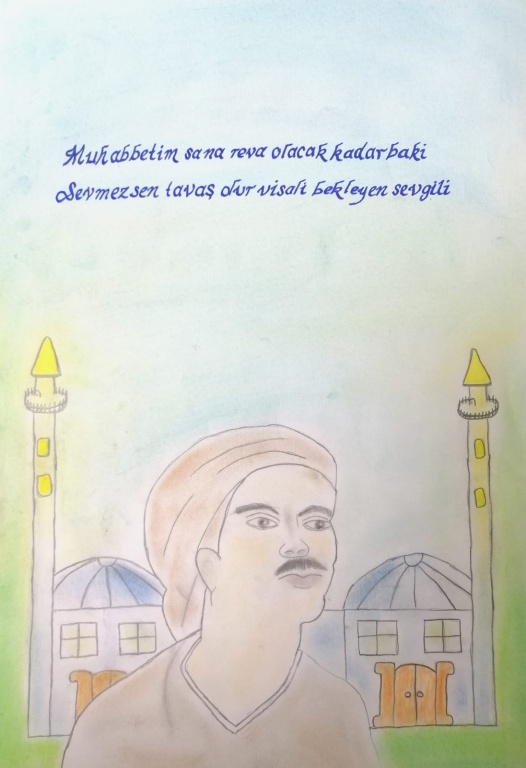 Muhabbetim sana reva olacak kadar baki
Sevmezsen tavaş olur visali bekleyen sevgili